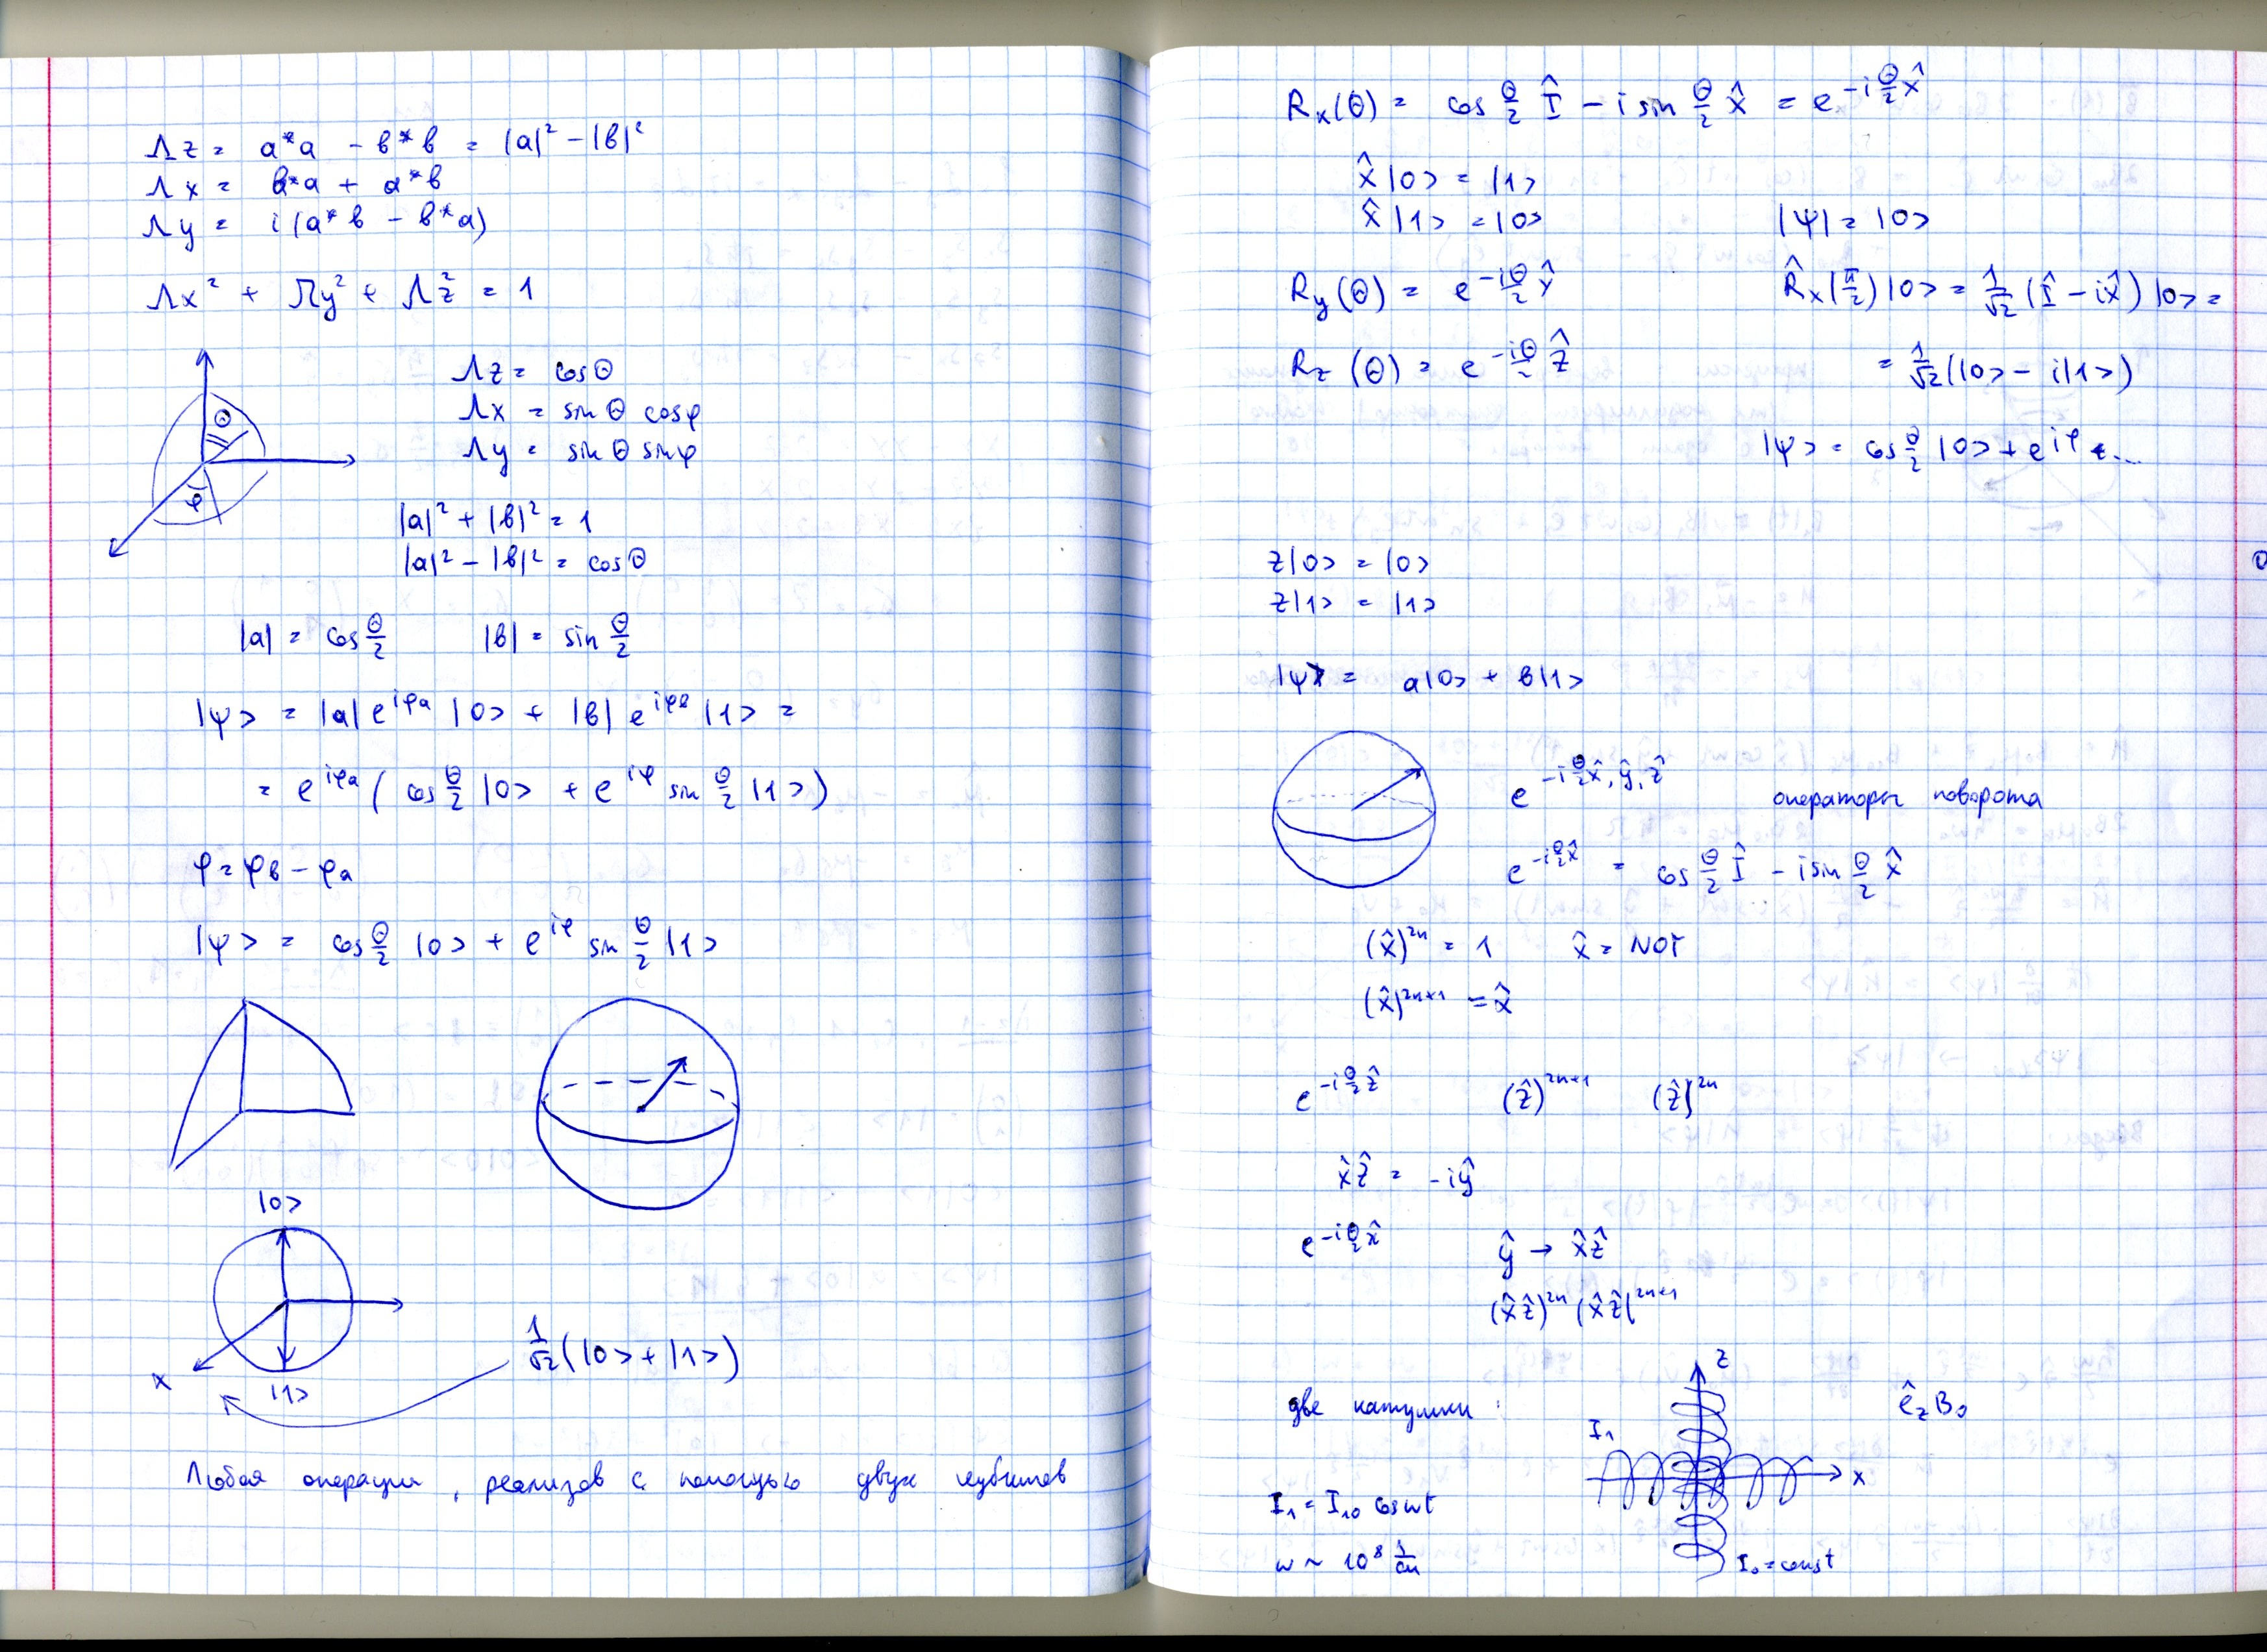 Λz = a*a - в*в = |a|² - |в|²
Λx = в*a + a*в
Λy = i(a*в - в*a)
Λx² + Λy² + Λz² = 1
Θ
φ
Λz = cosΘ
Λx = sinΘ cosφ
Λy = sinΘ sinφ
|a|² + |в|² = 1
|a|² - |в|² = cosΘ
|a| = cos Θ/2 |в| = sin Θ/2
|ψ> = |a| e^{iφa} |0> + |в| e^{iφв} |1> =
= e^{iφa} ( cos Θ/2 |0> + e^{iφ} sin Θ/2 |1>)
φ = φв - φa
|ψ> = cos Θ/2 |0> + e^{iφ} sin Θ/2 |1>
|0>
x
|1>
1/√2 (|0> + |1>)
Любая операция, реализов с помощью двух кубитов
Rx(Θ) = cos Θ/2 Î - i sin Θ/2 X̂ = e^{-i Θ/2 X̂}
X̂|0> = |1>
X̂|1> = |0>
|ψ| = |0>
Ry(Θ) = e^{-iΘ/2 Ŷ}
R̂x(π/2)|0> = 1/√2 (Î - iX̂)|0> =
Rz(Θ) = e^{-iΘ/2 Ẑ}
= 1/√2 (|0> - i|1>)
|ψ> = cos Θ/2 |0> + e^{iφ} ...
z|0> = |0>
z|1> = |1>
|ψ> = a|0> + в|1>
e^{-i Θ/2 x̂, ŷ, ẑ} операторы поворота
e^{-i Θ/2 x̂} = cos Θ/2 Î - i sin Θ/2 X̂
(x̂)^{2n} = 1 x̂ = NOT
(x̂)^{2n+1} = x̂
e^{-i Θ/2 ẑ} (ẑ)^{2n+1} (ẑ)^{2n}
x̂ẑ = -iŷ
e^{-i Θ/2 x̂} ŷ → x̂ẑ
(x̂ẑ)^{2n} (x̂ẑ)^{2n+1}
две катушки:
z
ê_z B₀
I₁
x
I₁ = I₁₀ cosωt
ω ~ 10⁸
I₀ = const